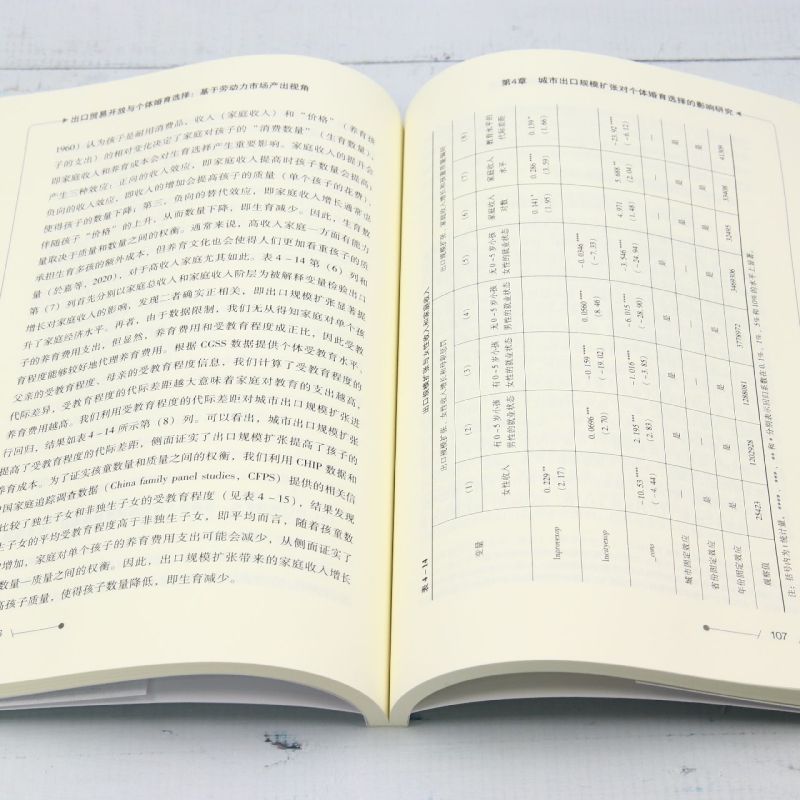 出口贸易开放与个体婚育选择：基于劳动力市场产出视角
1960）认为孩子是耐用消费品，收入（家庭收入）和“价格”（养育孩
子的支出）的相对变化决定了家庭对孩子的“消费数量”（生育数量），
即家庭收入和养育成本会对生育选择产生重要影响。家庭收入的提升会
产生三种效应：正向的收入效应，即家庭收入提高时孩子数量会提高；
负向的收入效应，即收入的增加会提高孩子的质量（单个孩子的花费），
使得孩子的数量下降；第三，负向的替代效应，即家庭收入增长通常也
伴随孩子“价格”的上升，从而数量下降，即生育减少。因此，生育数
量取决于质量和数量之间的权衡。通常来说，高收入家庭一方面有能力
承担生育多孩的额外成本，但养育文化也会使得人们更加看重孩子的质
量（於嘉等，2020），对于高收入家庭尤其如此。表4-14第（6）列和
第（7）列首先分别以家庭总收入和家庭收入阶层为被解释变量检验出口
增长对家庭收入的影响，发现二者确实正相关，即出口规模扩张显著提
升了家庭经济水平。再者，由于数据限制，我们无从得知家庭对单个孩
子的养育费用支出，但显然，养育费用和受教育程度成正比，因此受教
育程度能够较好地代理养育费用。根据CGSS数据提供个体受教育水平、
父亲的受教育程度、母亲的受教育程度信息，我们计算了受教育程度的
代际差异，受教育程度的代际差距越大意味着家庭对教育的支出越高，
养育费用越高。我们利用受教育程度的代际差距对城市出口规模扩张进
行回归，结果如表4-14所示第（8）列。可以看出，城市出口规模扩张
提高了受教育程度的代际差距，侧面证实了出口规模扩张提高了孩子的
养育成本。为了证实孩童数量和质量之间的权衡，我们利用CHIP数据和
国家庭追踪调查数据（China family panel studies，CFPS）提供的相关信
比较了独生子女和非独生子女的受教育程度（见表4-15），结果发现
生子女的平均受教育程度高于非独生子女，即平均而言，随着孩童数
增加，家庭对单个孩子的养育费用支出可能会减少，从侧面证实了
数量—质量之间的权衡。因此，出口规模扩张带来的家庭收入增长
高孩子质量，使得孩子数量降低，即生育减少。
第4章 城市出口规模扩张对个体婚育选择的影响研究
表4-14 出口规模扩张与女性收入和家庭收入
变量 (1) (2) (3) (4) (5) (6) (7) (8)
女性收入 有0~5岁小孩男性的就业状态 有0~5岁小孩女性的就业状态 无0~5岁小孩男性的就业状态 无0~5岁小孩女性的就业状态 家庭收入对数 家庭收入水平 教育水平的代际差距
lnprovexp 0.229** 0.141* 0.286**** 0.139*
(2.17) (1.95) (3.59) (1.66)
lncityexp 0.0696*** -0.159**** 0.0560**** -0.0346****
(2.70) (-19.02) (8.46) (-7.33)
_cons -10.53**** 2.195*** -1.016**** -6.015**** -3.546**** 4.971 5.688** -23.92****
(-4.44) (2.83) (-3.85) (-28.90) (-24.94) (1.48) (2.04) (-6.12)
城市固定效应
省份固定效应
年份固定效应
观察值 25423 1202928 1288081 3778972 3469306 32495 33408 41309
注：括号内为t统计量，****、***、**和*分别表示回归系数在0.1%、1%、5%和10%的水平上显著。
107